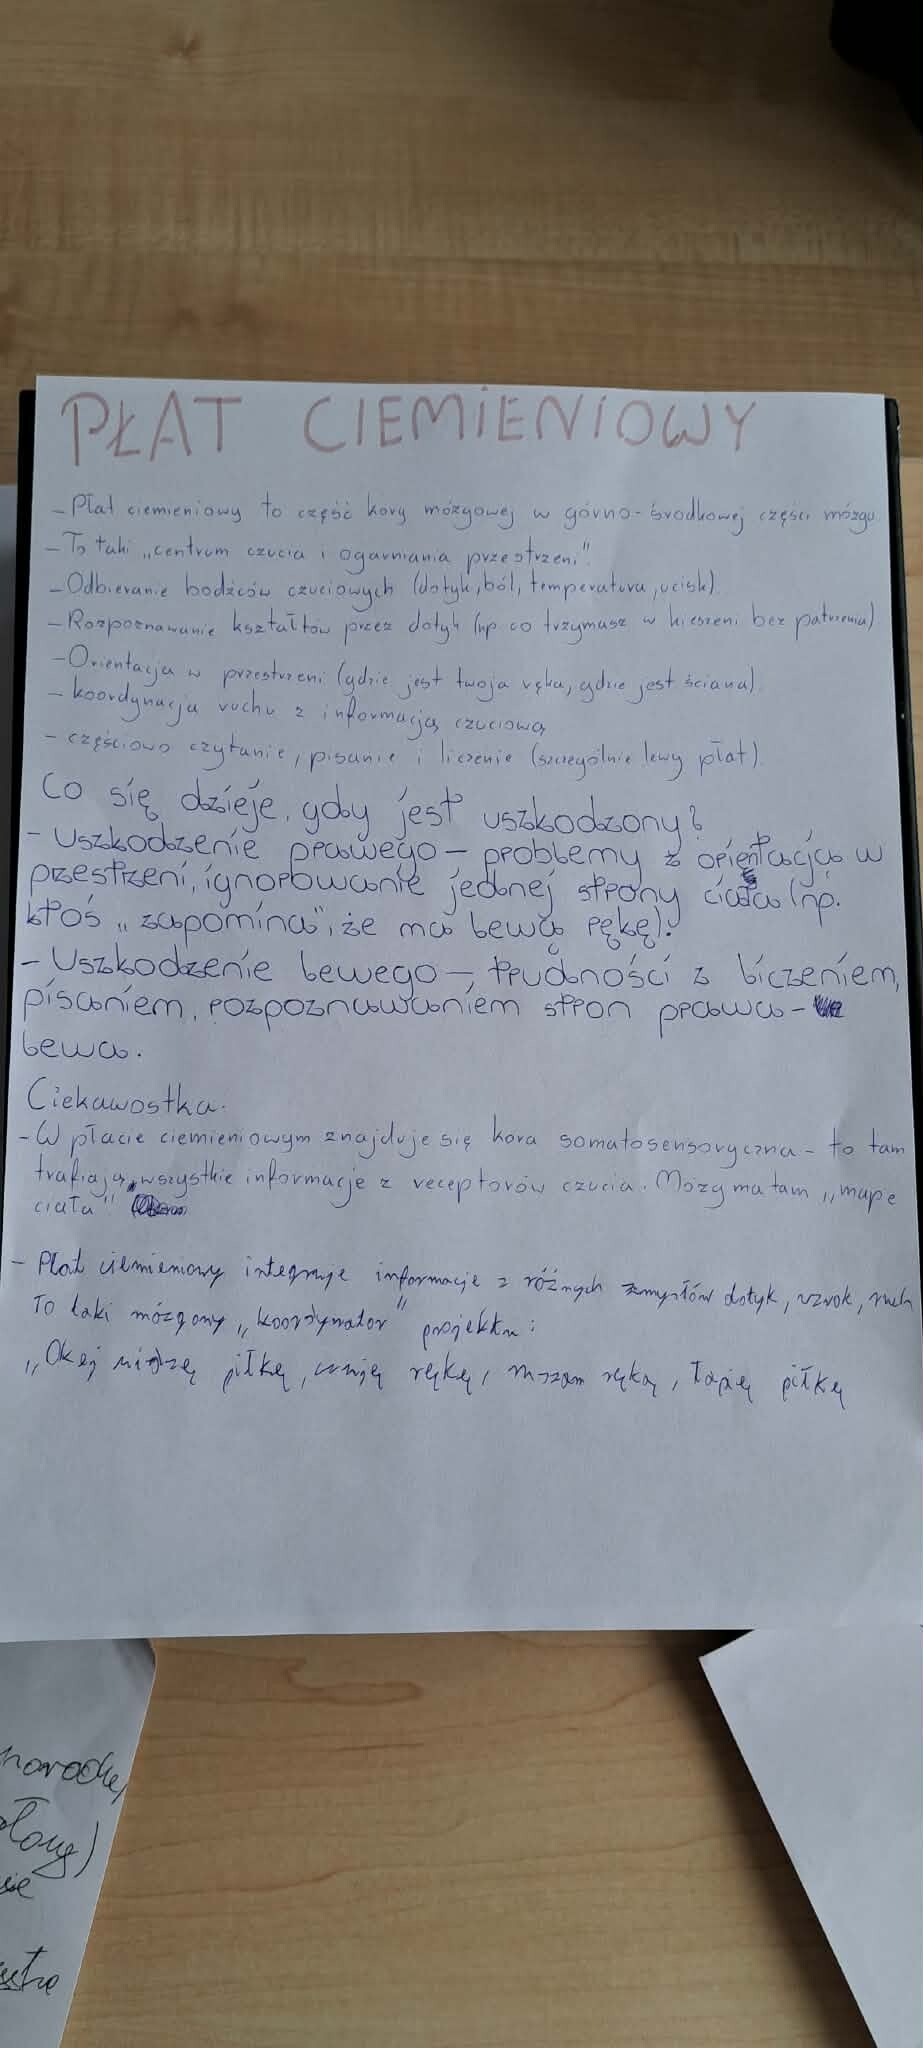 PŁAT CIEMIENIOWY
- Płat ciemieniowy to część kory mózgowej w górno-środkowej części mózgu
- To taki „centrum czucia i ogarniania przestrzeni".
- Odbieranie bodźców czuciowych (dotyk, ból, temperatura, ucisk).
- Rozpoznawanie kształtów przez dotyk (np co trzymasz w kieszeni bez patrzenia)
- Orientacja w przestrzeni (gdzie jest twoja ręka, gdzie jest ściana).
- koordynacja ruchu z informacją czuciową
- częściowo czytanie, pisanie i liczenie (szczególnie lewy płat).
Co się dzieje, gdy jest uszkodzony?
- Uszkodzenie prawego - problemy z orientacją w
przestrzeni, ignorowanie jednej strony ciała (np.
ktoś „zapomina", że ma lewą rękę).
- Uszkodzenie lewego - trudności z liczeniem,
pisaniem, rozpoznawaniem stron prawa -
lewa.
Ciekawostka.
- W płacie ciemieniowym znajduje się kora somatosensoryczna - to tam
trafiają wszystkie informacje z receptorów czucia. Mózg ma tam „mapę
ciała"
- Płat ciemieniowy integruje informacje z różnych zmysłów dotyk, wzrok, ruch
To taki mózgowy „koordynator" projektu:
„Okej widzę piłkę, czuję rękę, ruszam ręką, łapię piłkę
narodke,